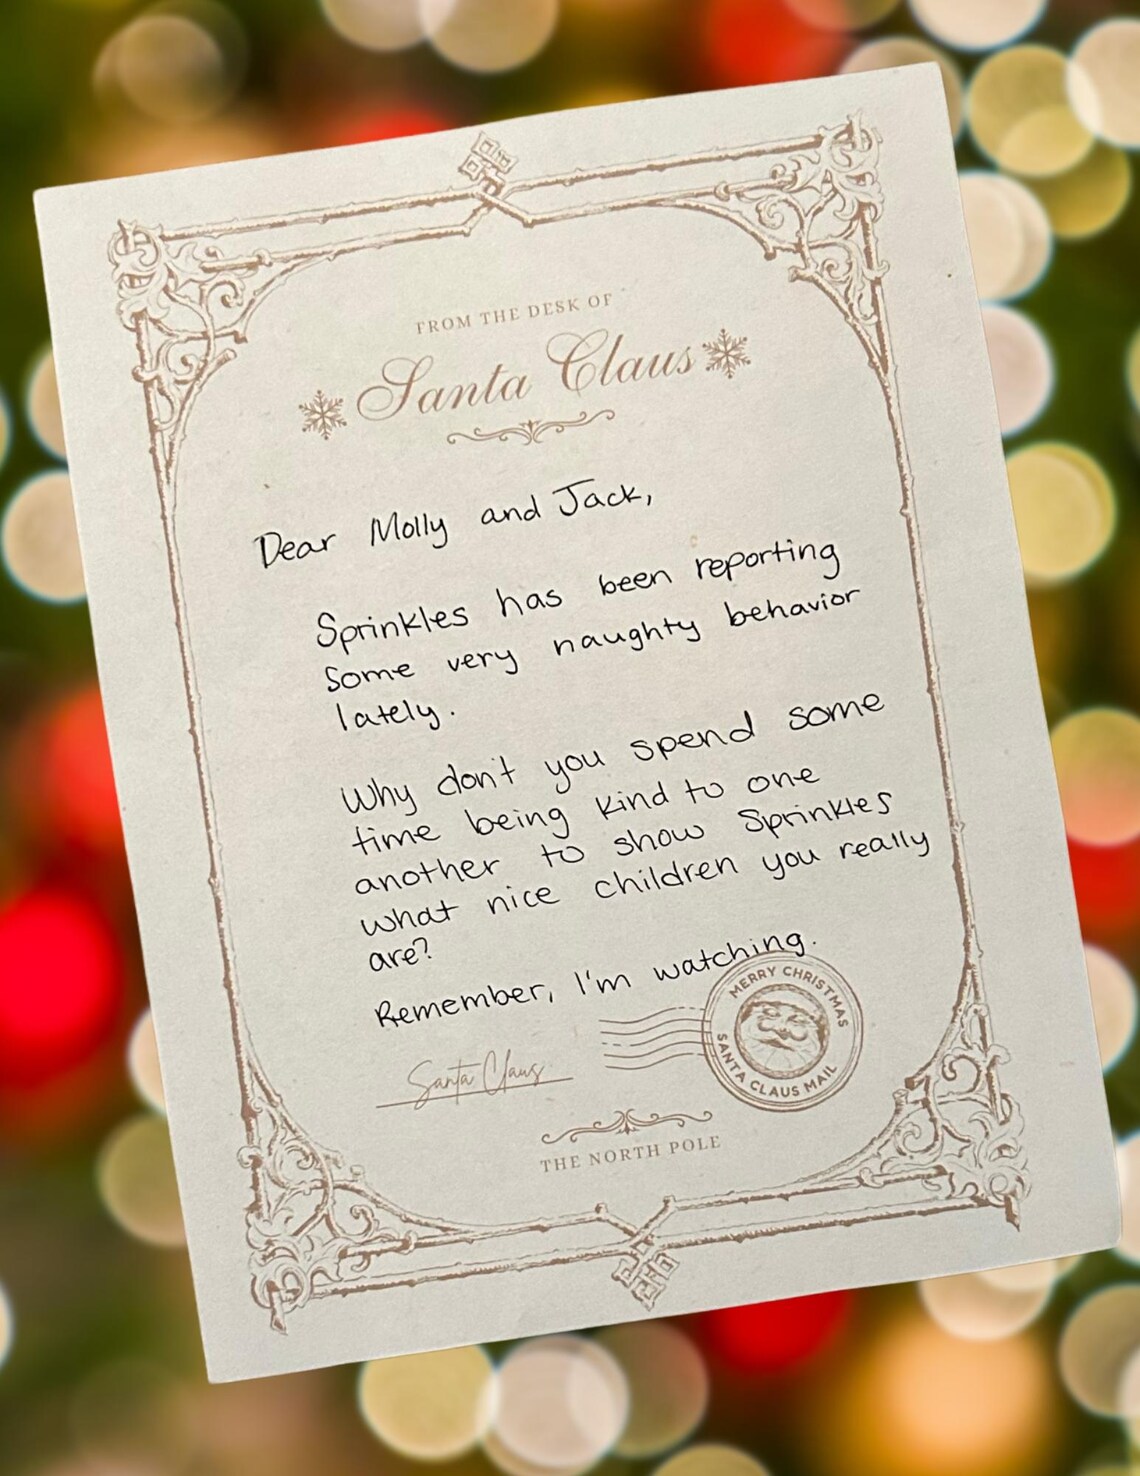 FROM THE DESK OF
Santa Claus
Dear Molly and Jack,
Sprinkles has been reporting
some very naughty behavior
lately.
Why don't you spend some
time being kind to one
another to show Sprinkles
what nice children you really
are?
Remember, I'm watching.
MERRY CHRISTMAS
SANTA CLAUS MAIL
Santa Claus
THE NORTH POLE